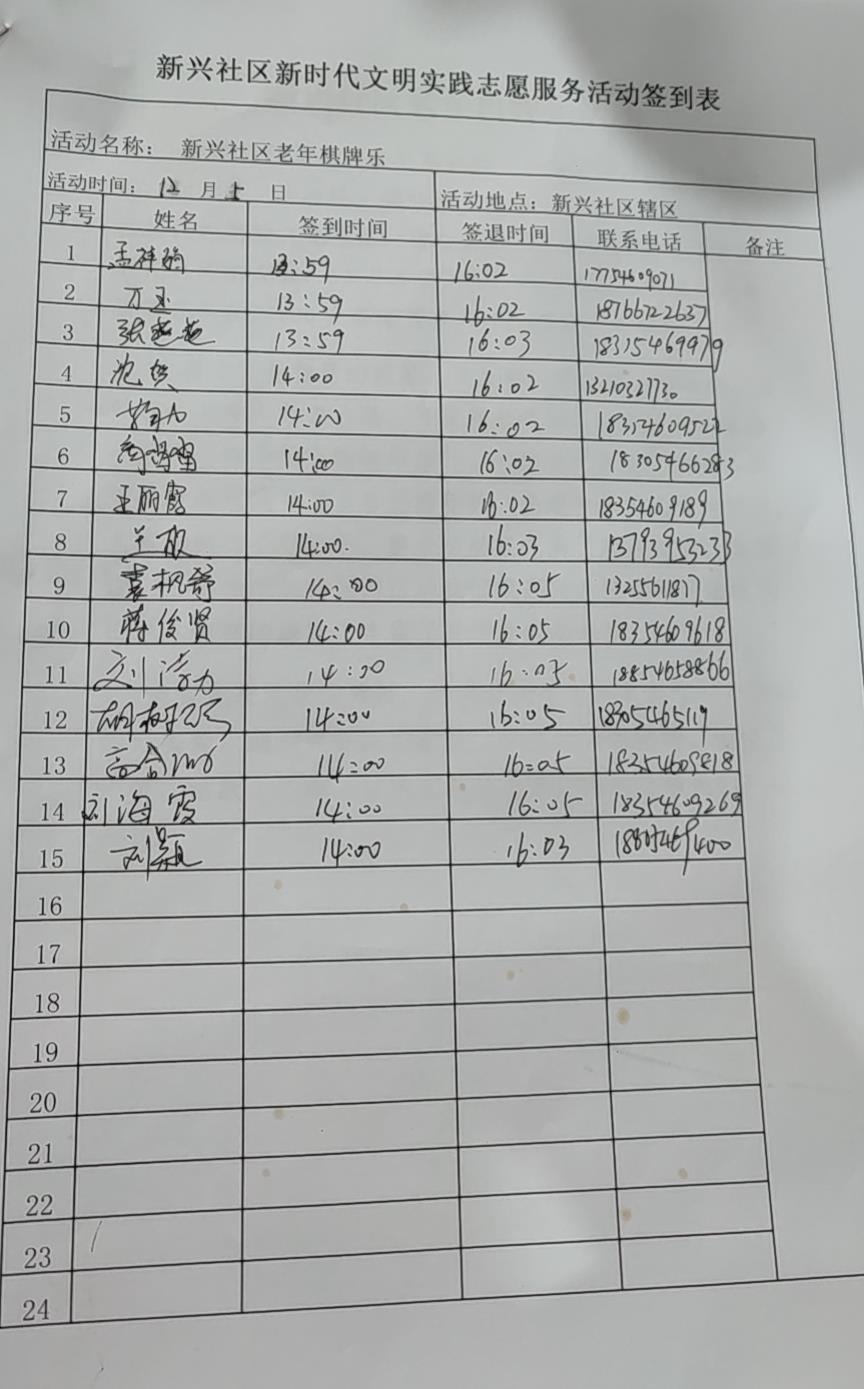 新兴社区新时代文明实践志愿服务活动签到表
活动名称： 新兴社区老年棋牌乐
活动时间： 12 月 5 日 活动地点：新兴社区辖区
序号 姓名 签到时间 签退时间 联系电话 备注
1 孟祥 13:59 16:02 17754609071
2 万玉 13:59 16:02 18766722637
3 张 13:59 16:03 18315469979
4 14:00 16:02 13210327730
5 14:00 16:02 18354609522
6 14:00 16:02 18305466283
7 王丽霞 14:00 16:02 18354609189
8 兰 14:00. 16:03 13793953233
9 袁 14:00 16:05 13255611877
10 蒋俊贤 14:00 16:05 18354609618
11 刘 14:00 16:05 18854658866
12 胡 14:00 16:05 18305465119
13 14:00 16:05 18354609818
14 刘海霞 14:00 16:05 18354609269
15 刘颖 14:00 16:03
16
17
18
19
20
21
22
23
24